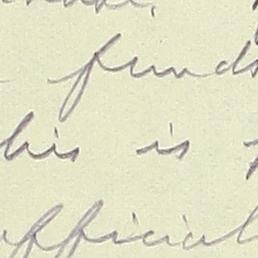 funds
his is
official